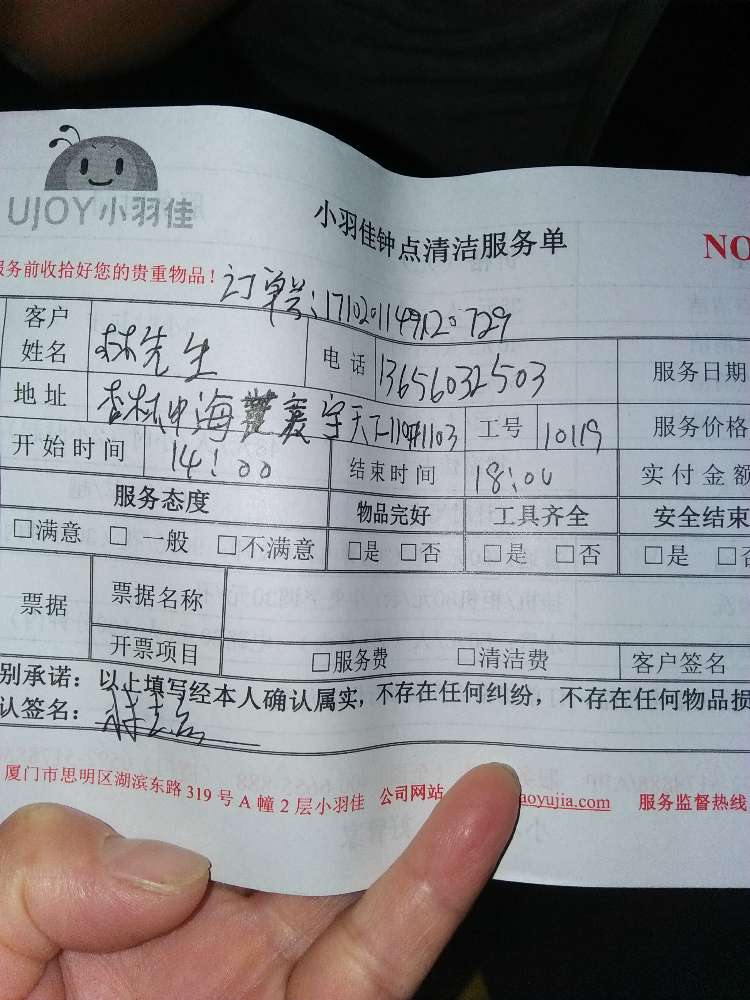 UJOY小羽佳
小羽佳钟点清洁服务单
NO
服务前收拾好您的贵重物品！
订单号：1710201149120729
客户姓名 林先生 电话 13656032503 服务日期
地址 杏林中海寰宇天下 1103 工号 10119 服务价格
开始时间 14:00 结束时间 18:00 实付金额
服务态度 物品完好 工具齐全 安全结束
□满意 □一般 □不满意 □是 □否 □是 □否 □是 □否
票据 票据名称
开票项目 □服务费 □清洁费 客户签名
别承诺：以上填写经本人确认属实，不存在任何纠纷，不存在任何物品损
认签名：
厦门市思明区湖滨东路 319 号 A 幢 2 层小羽佳 公司网站 aoyujia.com 服务监督热线